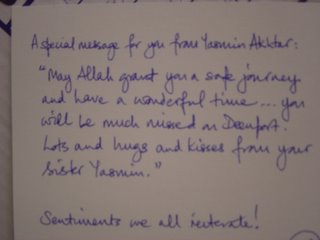 A special message for you from Yasmin Akhtar:
"May Allah grant you a safe journey
and have a wonderful time... you
will be much missed on Deenport.
Lots and hugs and kisses from your
sister Yasmin."
Sentiments we all reiterate!